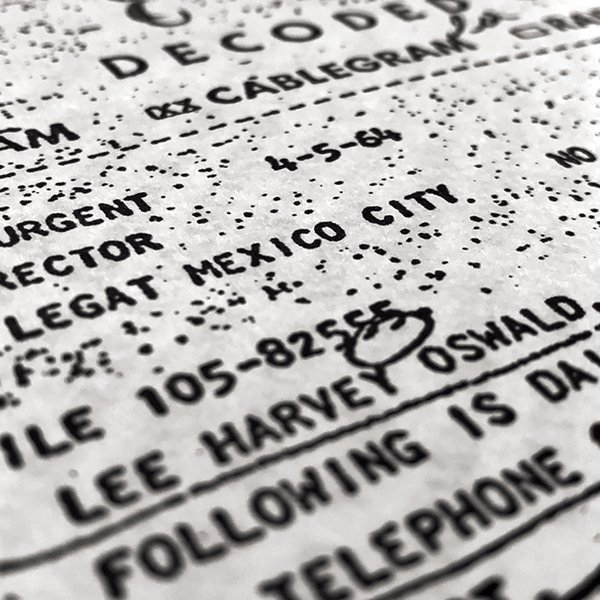 DECODED
AM XX CABLEGRAM RA
4-5-64
URGENT NO
RECTOR
LEGAT MEXICO CITY
ILE 105-82555
LEE HARVEY OSWALD.
FOLLOWING IS DAL
TELEPHONE